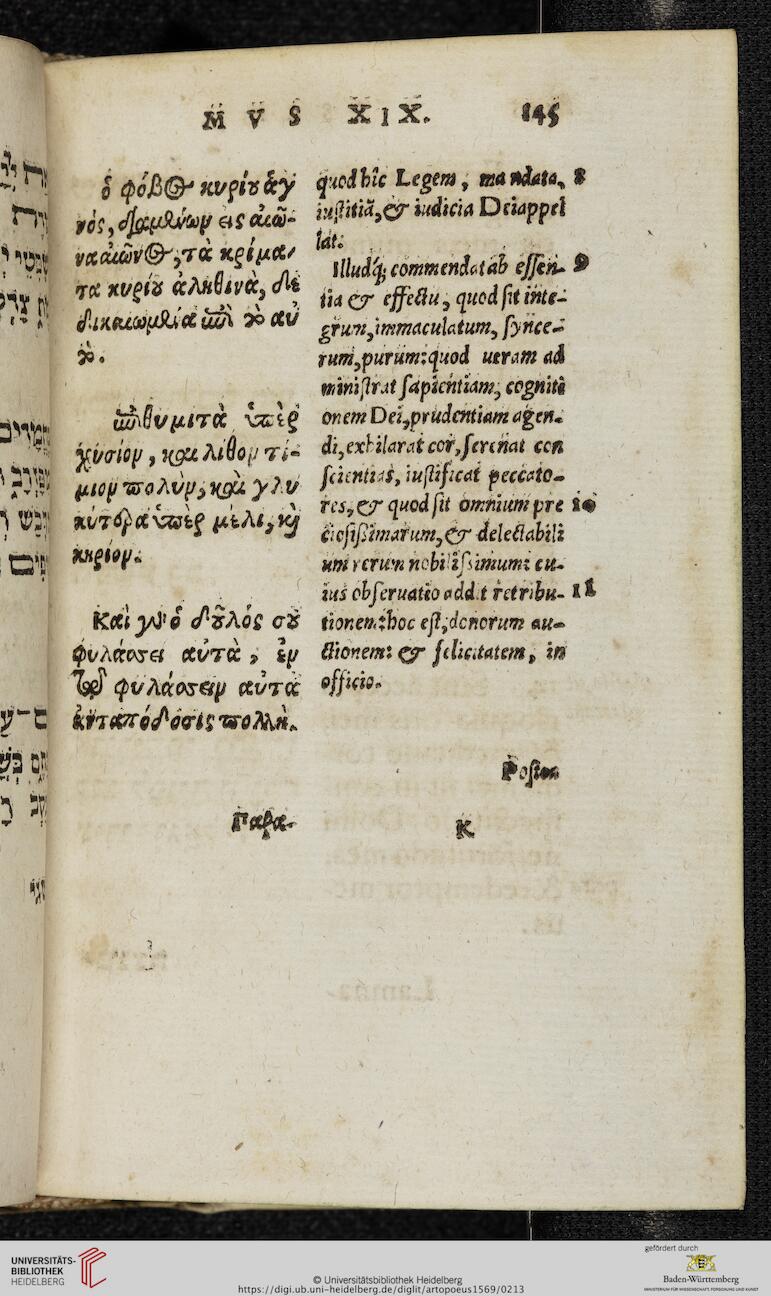 M V S XIX. 145
ὁ φόβος κυρίου ἁγ
νός, διαμένων εἰς αἰῶ-
να αἰῶνος, τὰ κρίμα-
τα κυρίου ἀληθινὰ, δε
δικαιωμένα ἐπὶ τὸ αὐ
τό.
ἐπιθυμιτὰ ὑπὲρ
χύσίον, καὶ λίθον τί-
μιον πολὺν, καὶ γλυ
κύτερα ὑπὲρ μέλι, καὶ
κηρίον.
Καὶ γὰρ ὁ δοῦλός σου
φυλάσσει αὐτὰ, ἐν
τῷ φυλάσσειν αὐτὰ
ἀνταπόδοσις πολλὴ.
Παρα-
quod hîc Legem, mandata, 8
iustitiã, & iudicia Dei appel
lat.
Illudq́; commendat ab essen- 9
tia & effectu, quod sit inte-
grum, immaculatum, synce-
rum, purum: quod ueram ad
ministrat sapientiam, cogniti
onem Dei, prudentiam agen-
di, exhilarat cor, serenat con
scientias, iustificat peccato-
res, & quod sit omnium pre 10
ciosißimarum, & delectabili
um rerum nobilißimum: cu-
ius obseruatio addit retribu- 11
tionem: hoc est, donorum au-
ctionem: & felicitatem, in
officio.
Postea
K
UNIVERSITÄTS-
BIBLIOTHEK
HEIDELBERG
© Universitätsbibliothek Heidelberg
https://digi.ub.uni-heidelberg.de/diglit/artopoeus1569/0213
gefördert durch
Baden-Württemberg
MINISTERIUM FÜR WISSENSCHAFT, FORSCHUNG UND KUNST